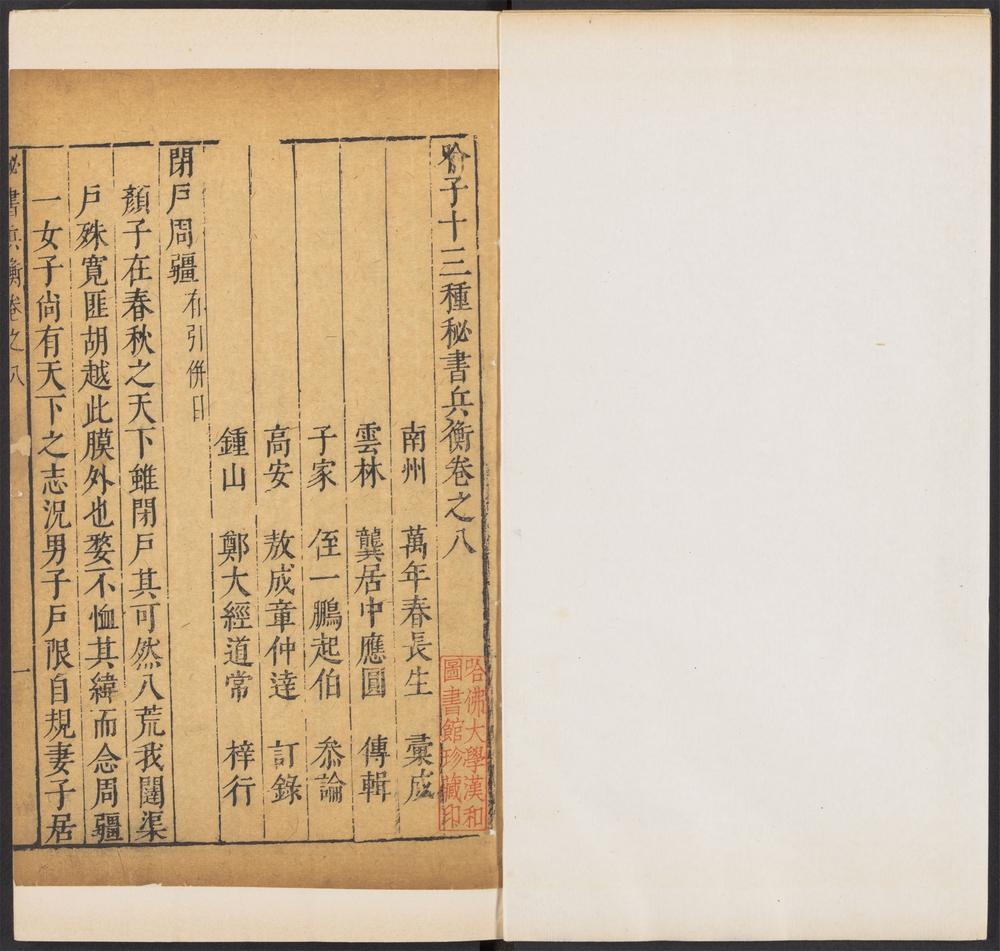 喻子十三種秘書兵衡卷之八
南州 萬年春長生 彙成
雲林 龔居中應圓 傳輯
子家 侄一鵬起伯 叅論
高安 敖成章仲達 訂錄
鍾山 鄭大經道常 梓行
閉戶周疆有引併日
顏子在春秋之天下雖閉戶其可然八荒我闥渠
戶殊寬匪胡越此膜外也嫠不恤其緯而念周疆
一女子尙有天下之志況男子戶限自規妻子居
秘書兵衡卷之八
一
哈佛大學漢和
圖書館珍藏印